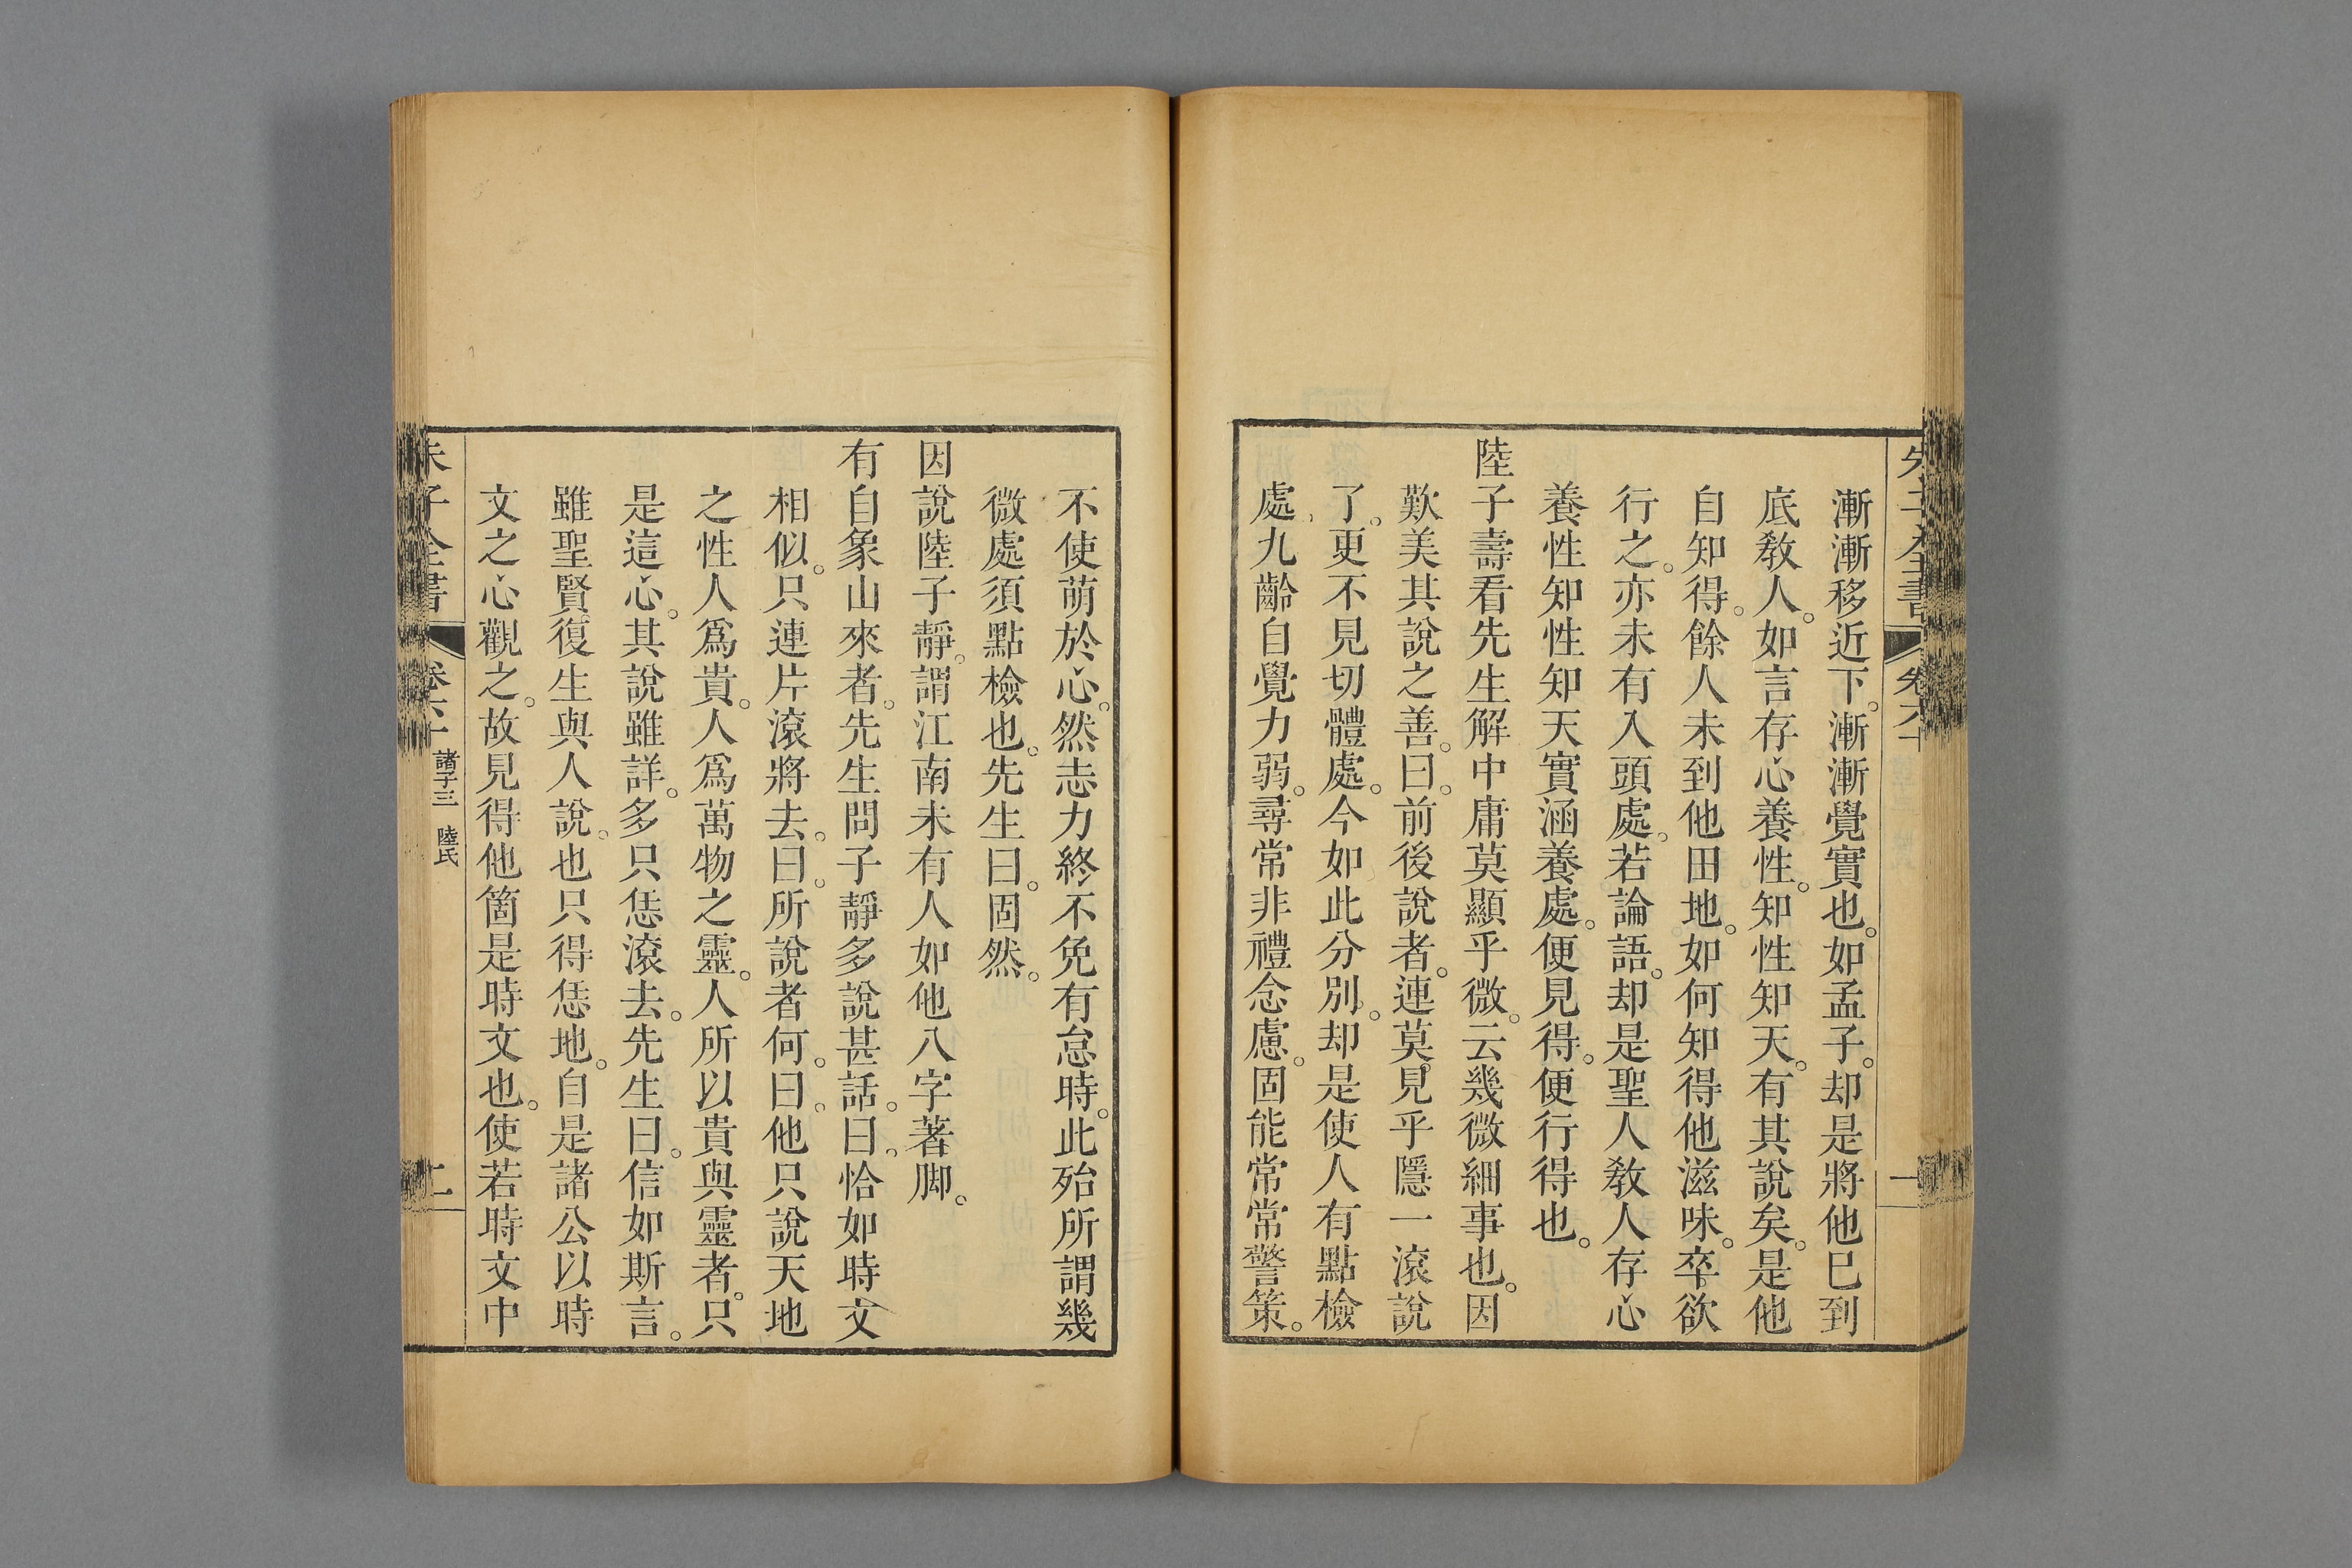 漸漸移近下。漸漸覺實也。如孟子。却是將他巳到
底敎人。如言存心養性。知性知天。有其說矣。是他
自知得。餘人未到他田地。如何知得他滋味。卒欲
行之。亦未有入頭處。若論語。却是聖人敎人存心
養性知性知天實涵養處。便見得。便行得也。
陸子壽看先生解中庸莫顯乎微。云幾微細事也。因
歎美其說之善。曰。前後說者。連莫見乎隱一滾說
了。更不見切體處。今如此分別。却是使人有點檢
處、九齡自覺力弱。尋常非禮念慮。固能常常警策。
不使萌於心。然志力終不免有怠時。此殆所謂幾
微處須點檢也。先生曰。固然。
因說陸子靜。謂江南未有人如他八字著脚。
有自象山來者。先生問子靜多說甚話。曰。恰如時文
相似。只連片滾將去。曰。所說者何。曰。他只說天地
之性人爲貴。人爲萬物之靈。人所以貴與靈者。只
是這心。其說雖詳。多只恁滾去。先生曰。信如斯言。
雖聖賢復生與人說。也只得恁地。自是諸公以時
文之心觀之。故見得他箇是時文也。使若時文中
朱子全書
諸子三 陸氏